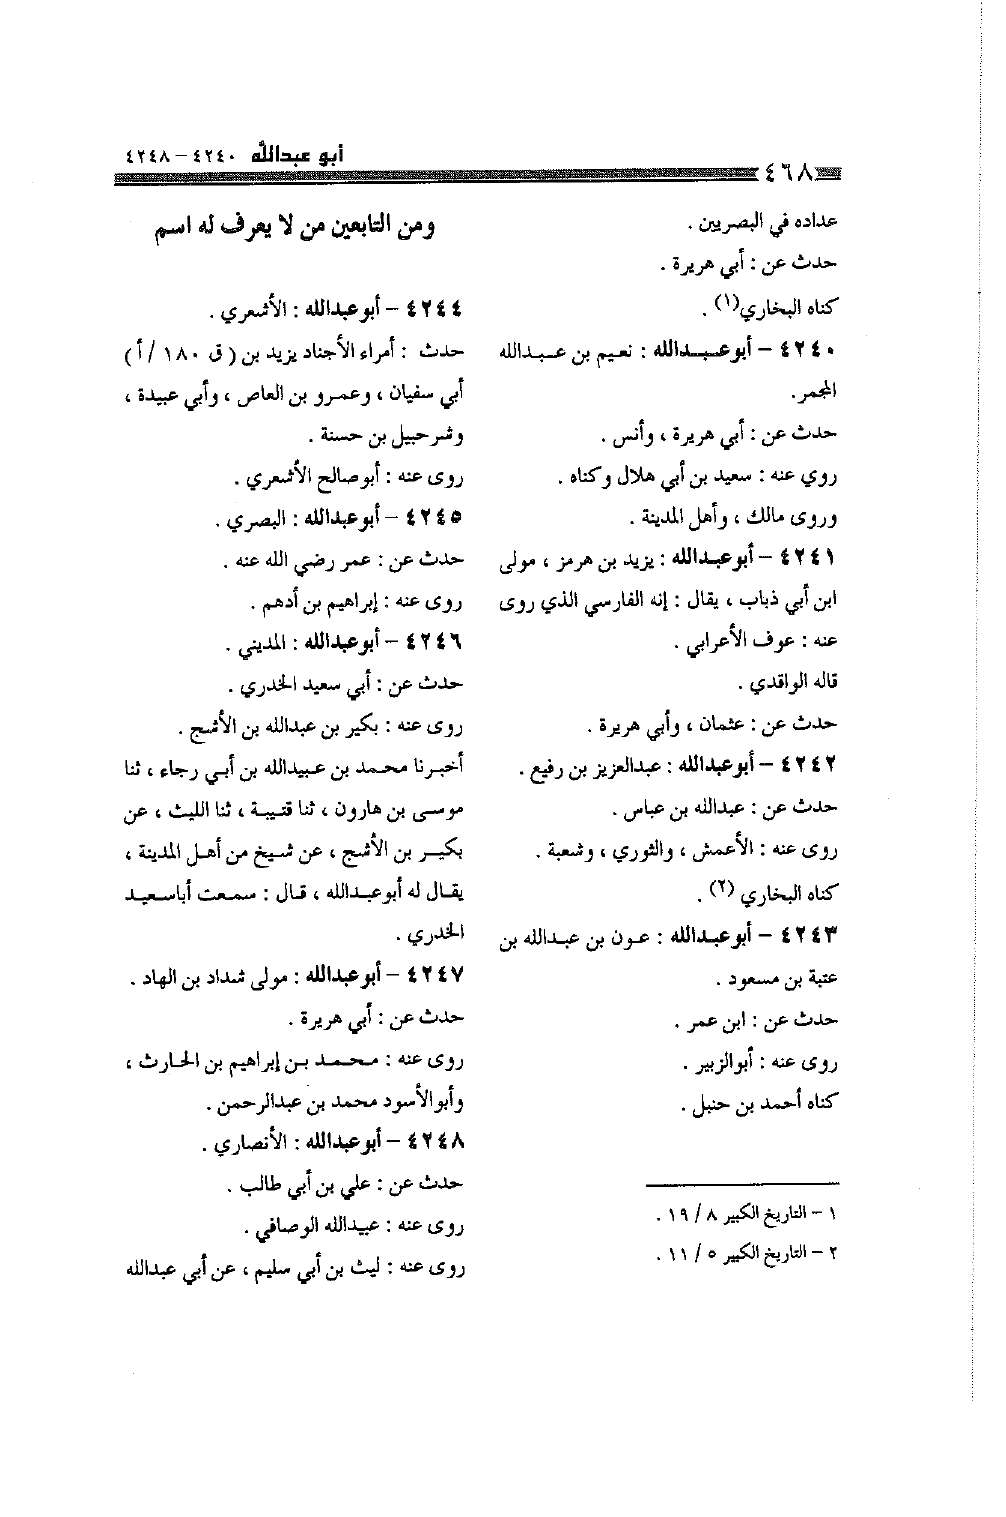 أبو عبدالله ٤٢٤٠ – ٤٢٤٨
٤٦٨
عداده في البصريين .
حدث عن : أبي هريرة .
كناه البخاري(١) .
٤٢٤٠ – أبو عبدالله : نعيم بن عبدالله
المجمر.
حدث عن : أبي هريرة ، وأنس .
روي عنه : سعيد بن أبي هلال وكناه .
وروى مالك ، وأهل المدينة .
٤٢٤١ – أبو عبدالله : يزيد بن هرمز ، مولى
ابن أبي ذباب ، يقال : إنه الفارسي الذي روى
عنه : عوف الأعرابي .
قاله الواقدي .
حدث عن : عثمان ، وأبي هريرة .
٤٢٤٢ – أبو عبدالله : عبدالعزيز بن رفيع .
حدث عن : عبدالله بن عباس .
روى عنه : الأعمش ، والثوري ، وشعبة .
كناه البخاري (٢) .
٤٢٤٣ – أبو عبدالله : عون بن عبدالله بن
عتبة بن مسعود .
حدث عن : ابن عمر .
روى عنه : أبو الزبير .
كناه أحمد بن حنبل .
١ – التاريخ الكبير ٨ / ١٩ .
٢ – التاريخ الكبير ٥ / ١١ .
ومن التابعين من لا يعرف له اسم
٤٢٤٤ – أبو عبدالله : الأشعري .
حدث : أمراء الأجناد يزيد بن ( ق ١٨٠ / أ )
أبي سفيان ، وعمرو بن العاص ، وأبي عبيدة ،
وشرحبيل بن حسنة .
روى عنه : أبو صالح الأشعري .
٤٢٤٥ – أبو عبدالله : البصري .
حدث عن : عمر رضي الله عنه .
روى عنه : إبراهيم بن أدهم .
٤٢٤٦ – أبو عبدالله : المديني .
حدث عن : أبي سعيد الخدري .
روى عنه : بكير بن عبدالله بن الأشج .
أخبرنا محمد بن عبيدالله بن أبي رجاء ، ثنا
موسى بن هارون ، ثنا قتيبة ، ثنا الليث ، عن
بكير بن الأشج ، عن شيخ من أهل المدينة ،
يقال له أبو عبدالله ، قال : سمعت أباسعيد
الخدري .
٤٢٤٧ – أبو عبدالله : مولى شداد بن الهاد .
حدث عن : أبي هريرة .
روى عنه : محمد بن إبراهيم بن الحارث ،
وأبو الأسود محمد بن عبدالرحمن .
٤٢٤٨ – أبو عبدالله : الأنصاري .
حدث عن : علي بن أبي طالب .
روى عنه : عبيدالله الوصافي .
روى عنه : ليث بن أبي سليم ، عن أبي عبدالله